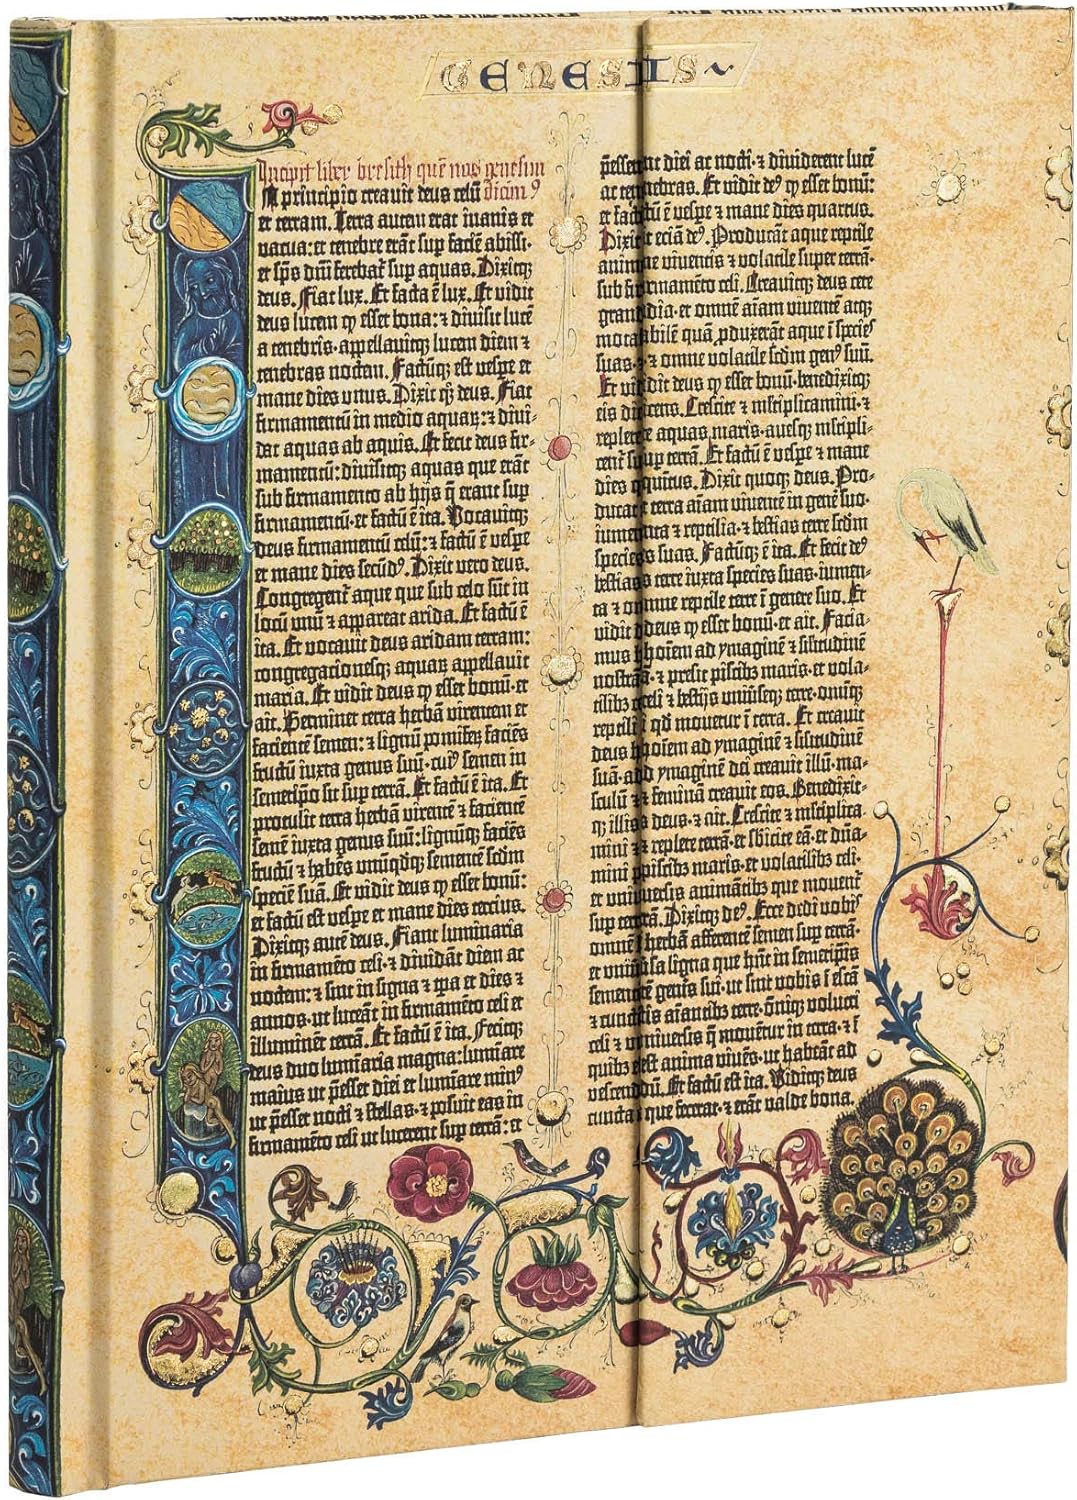 GENESIS
Incipit liber bresith quē nos genesim
In principio creavit deus celū dicim⁹
et terram. Terra autem erat inanis et
vacua: et tenebre erāt sup faciē abissi·
et sp̄s dn̄i ferebat͛ sup aquas. Dixitq;
deus. Fiat lux. Et facta ē lux. Et vidit
deus lucem ꝙ esset bona: ⁊ divisit lucē
a tenebris· appellavitq; lucem diem ⁊
tenebras noctem. Factūq; est vespe et
mane dies unus. Dixit qꝫ deus. Fiat
firmamentū in medio aquaꝝ: ⁊ divi-
dat aquas ab aquis. Et fecit deus fir-
mamentū: divisitq; aquas que erāt
sub firmamento ab hijs q̄ erant sup
firmamentū· et factū ē ita. Vocavitq;
deus firmamentū celū: ⁊ factū ē vespe
et mane dies secūd⁹. Dixit vero deus.
Congregent͛ aque que sub celo sūt in
locū unū ⁊ appareat arida. Et factū ē
ita. Et vocavit deus aridam terram:
congregacionesq; aquaꝝ appellavit
maria. Et vidit deus ꝙ esset bonū· et
ait. Germinet terra herbā virentem et
facientē semen: ⁊ lignū pomifeꝝ faciens
fructū iuxta genus suū· cui⁹ semen in
semetip̄o sit sup terrā. Et factū ē ita. Et
protulit terra herbā virentē ⁊ facientē
semē iuxta genus suū: lignūq; faciēs
fructū ⁊ habēs unūqdq; sementē scdm
speciē suā. Et vidit deus ꝙ esset bonū:
et factū est vespe et mane dies tercius.
Dixitq; autē deus. Fiant luminaria
in firmamēto celi· ⁊ dividāt diem ac
noctem: ⁊ sint in signa ⁊ tp̄a et dies ⁊
annos· ut luceāt in firmamēto celi et
illuminēt terrā. Et factū ē ita. Fecitq;
deus duo luminaria magna: lumīare
maius ut p̄esset diei et lumīare min⁹
ut p̄esset nocti ⁊ stellas· ⁊ posuit eas in
firmamēto celi ut lucerent sup terrā: et
p̄essent diei ac nocti· ⁊ dividerent lucē
ac tenebras. Et vidit de⁹ ꝙ esset bonū:
et factū ē vespe ⁊ mane dies quartus.
Dixit eciā de⁹. Producāt aque reptile
anime viventis ⁊ volatile super terrā·
sub firmamēto celi. Creavitq; deus cete
grandia· et omnē aīam viventē atq;
motabilē quā ꝓduxerāt aque ī species
suas· ⁊ omne volatile scdm gen⁹ suū.
Et vidit deus ꝙ esset bonū· benedixitq;
eis dicens. Crescite ⁊ mltiplicamini· ⁊
replete aquas maris· avesq; mltipli-
cent͛ sup terrā. Et factū ē vespe ⁊ mane
dies quītus. Dixit quoq; deus. Pro-
ducat terra aīam viventē in genē suo·
iumenta ⁊ reptilia· ⁊ bestias terre scdm
species suas. Factūq; ē ita. Et fecit de⁹
bestias terre iuxta species suas· iumen-
ta ⁊ omne reptile terre ī genere suo. Et
vidit deus ꝙ esset bonū· et ait. Facia-
mus hoīem ad ymaginē ⁊ sılitudinē
nostrā· ⁊ presit piscibꝫ maris· et vola-
tilibꝫ celi ⁊ bestijs universeq; terre· omniq;
reptili qd movetur ī terra. Et creavit
deus hoīem ad ymaginē ⁊ sılitudinē
suā· ad ymaginē dei creavit illū· ma-
sculū ⁊ feminā creavit eos. Benedixit-
q; illis deus· ⁊ ait. Crescite ⁊ mltiplica-
mini ⁊ replete terrā· et sbicite eā· et dn̄a-
mini piscibꝫ maris· et volatilibꝫ celi·
et universis animātibꝫ que movent͛
sup terrā. Dixitq; de⁹. Ecce dedi vobis
omnē herbā afferentē semen sup terrā·
et univsa ligna que hn̄t in semetip̄is
sementē genis sui· ut sint vobis ī escā
⁊ cunctis aīantibꝫ terre· oīniq; volucri
celi ⁊ universis q̄ moventur in terra· ⁊ ī
quibꝫ est anima vivēs· ut habeāt ad
vescendū. Et factū est ita. Viditq; deus
cuncta que fecerat· ⁊ erāt valde bona.